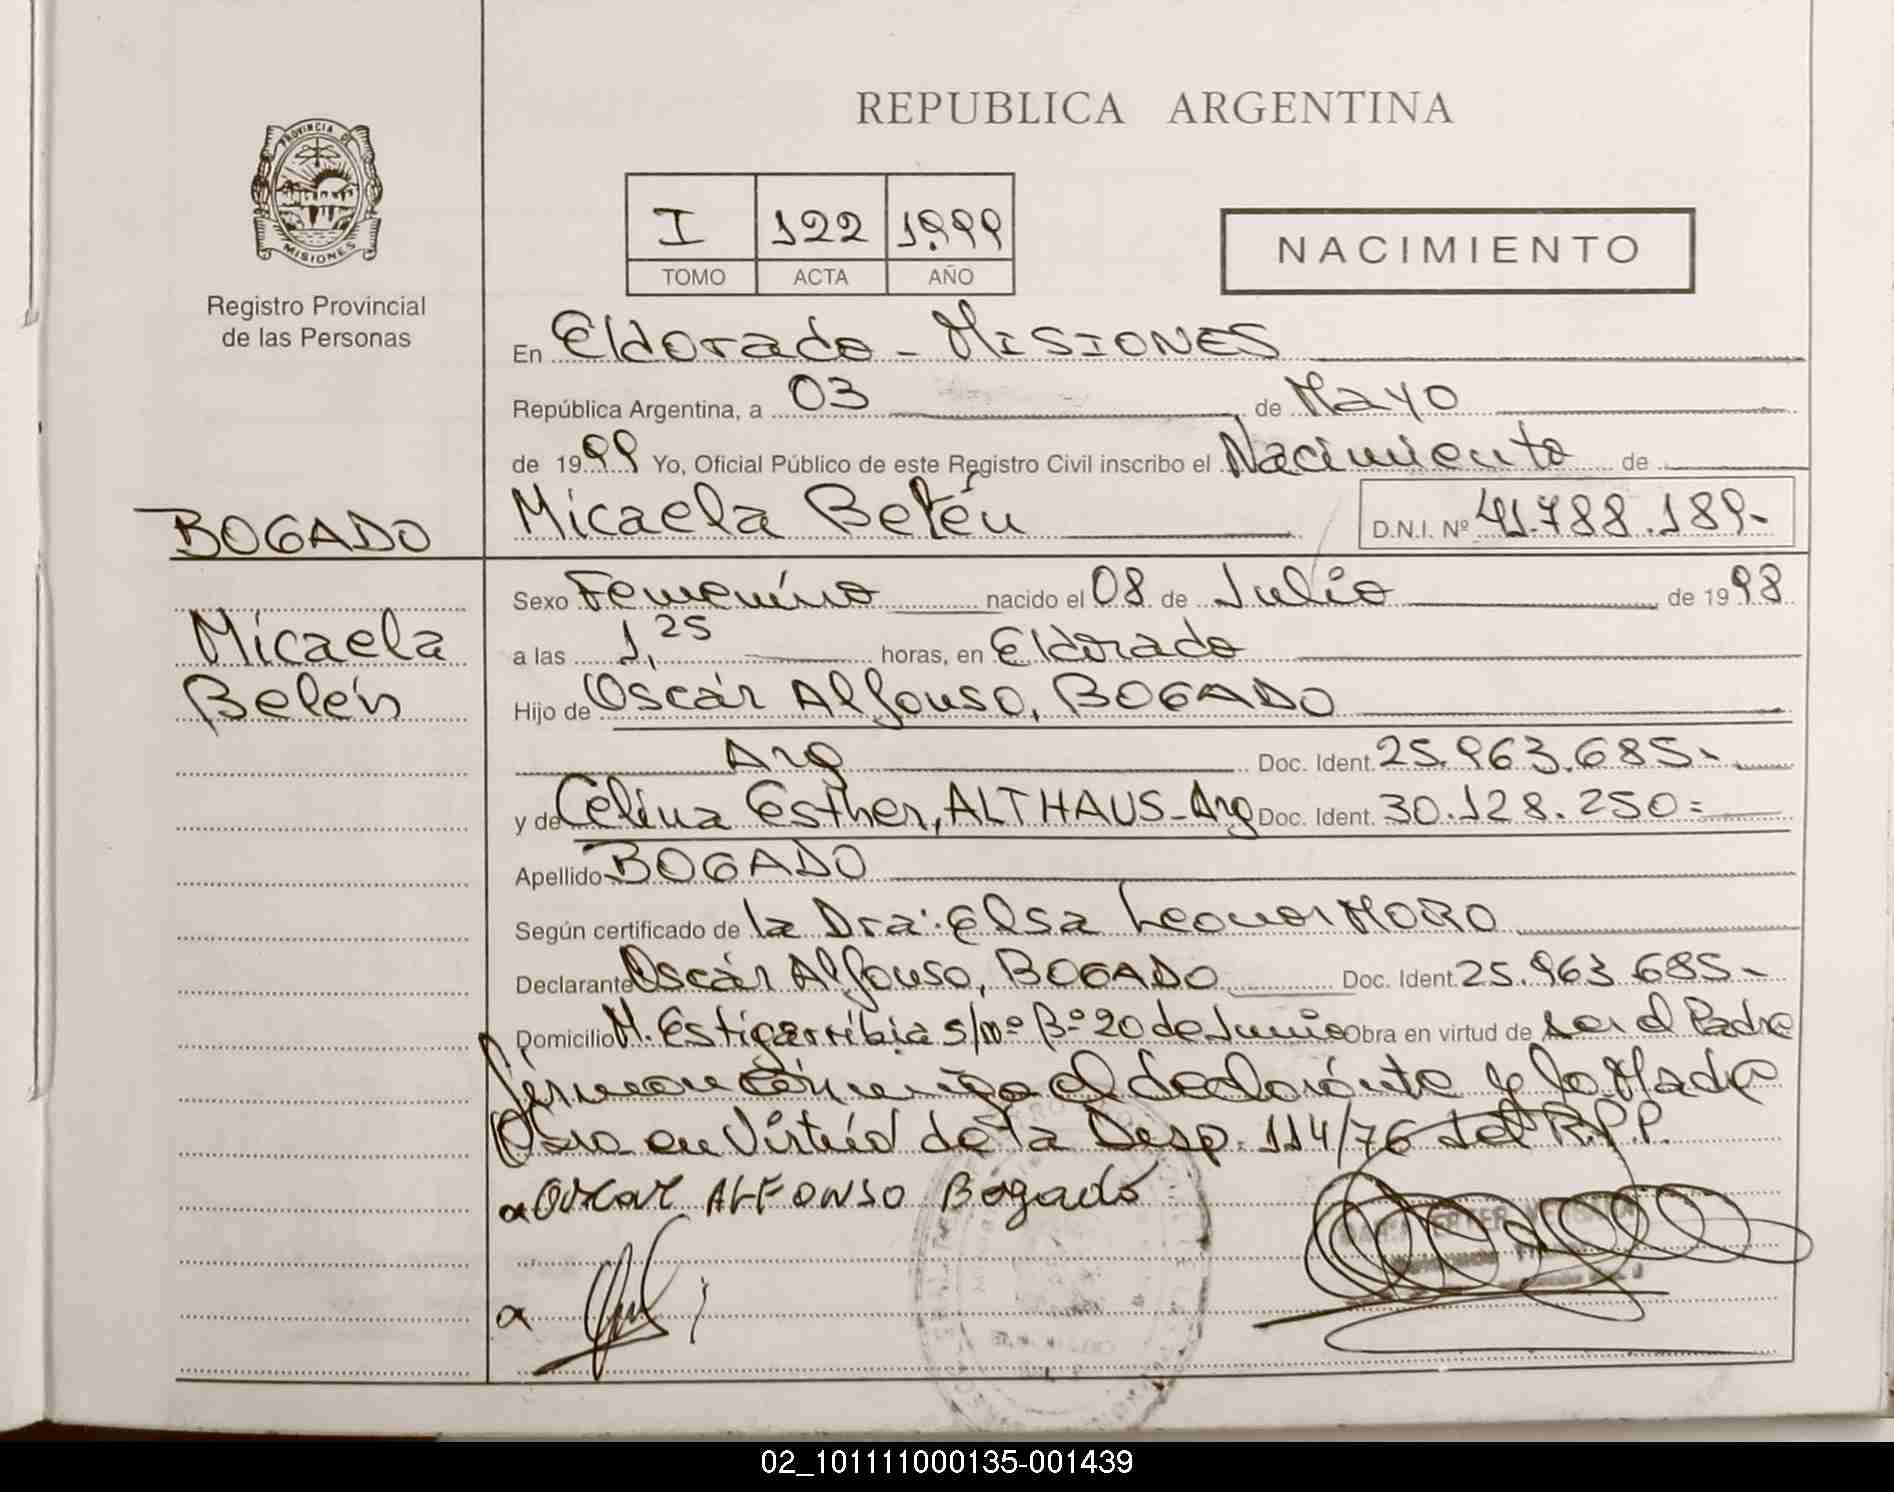 REPUBLICA ARGENTINA
PROVINCIA DE
MISIONES
Registro Provincial
de las Personas
I 122 1999
TOMO ACTA AÑO
NACIMIENTO
En Eldorado - MISIONES
República Argentina, a 03 de Mayo
de 1999 Yo, Oficial Público de este Registro Civil inscribo el Nacimiento de
BOGADO
Micaela Belén D.N.I. Nº 41.788.189-
Sexo Femenino nacido el 08 de Julio de 1998
Micaela
a las 1,25 horas, en Eldorado
Belén
Hijo de Oscár Alfonso, BOGADO
Arg Doc. Ident. 25.963.685-
y de Celina Esther, ALTHAUS-Arg Doc. Ident. 30.128.250=
Apellido BOGADO
Según certificado de la Dra: Elsa Leonor MORO
Declarante Oscár Alfonso, BOGADO Doc. Ident. 25.963.685-
Domicilio M. Estigarribia s/nº Bº 20 de Junio Obra en virtud de ser el Padre
firman conmigo el declarante y la Madre
en Virtud de la Desp. 114/76 del R.P.P.
OSCAR ALFONSO Bogado
02_101111000135-001439